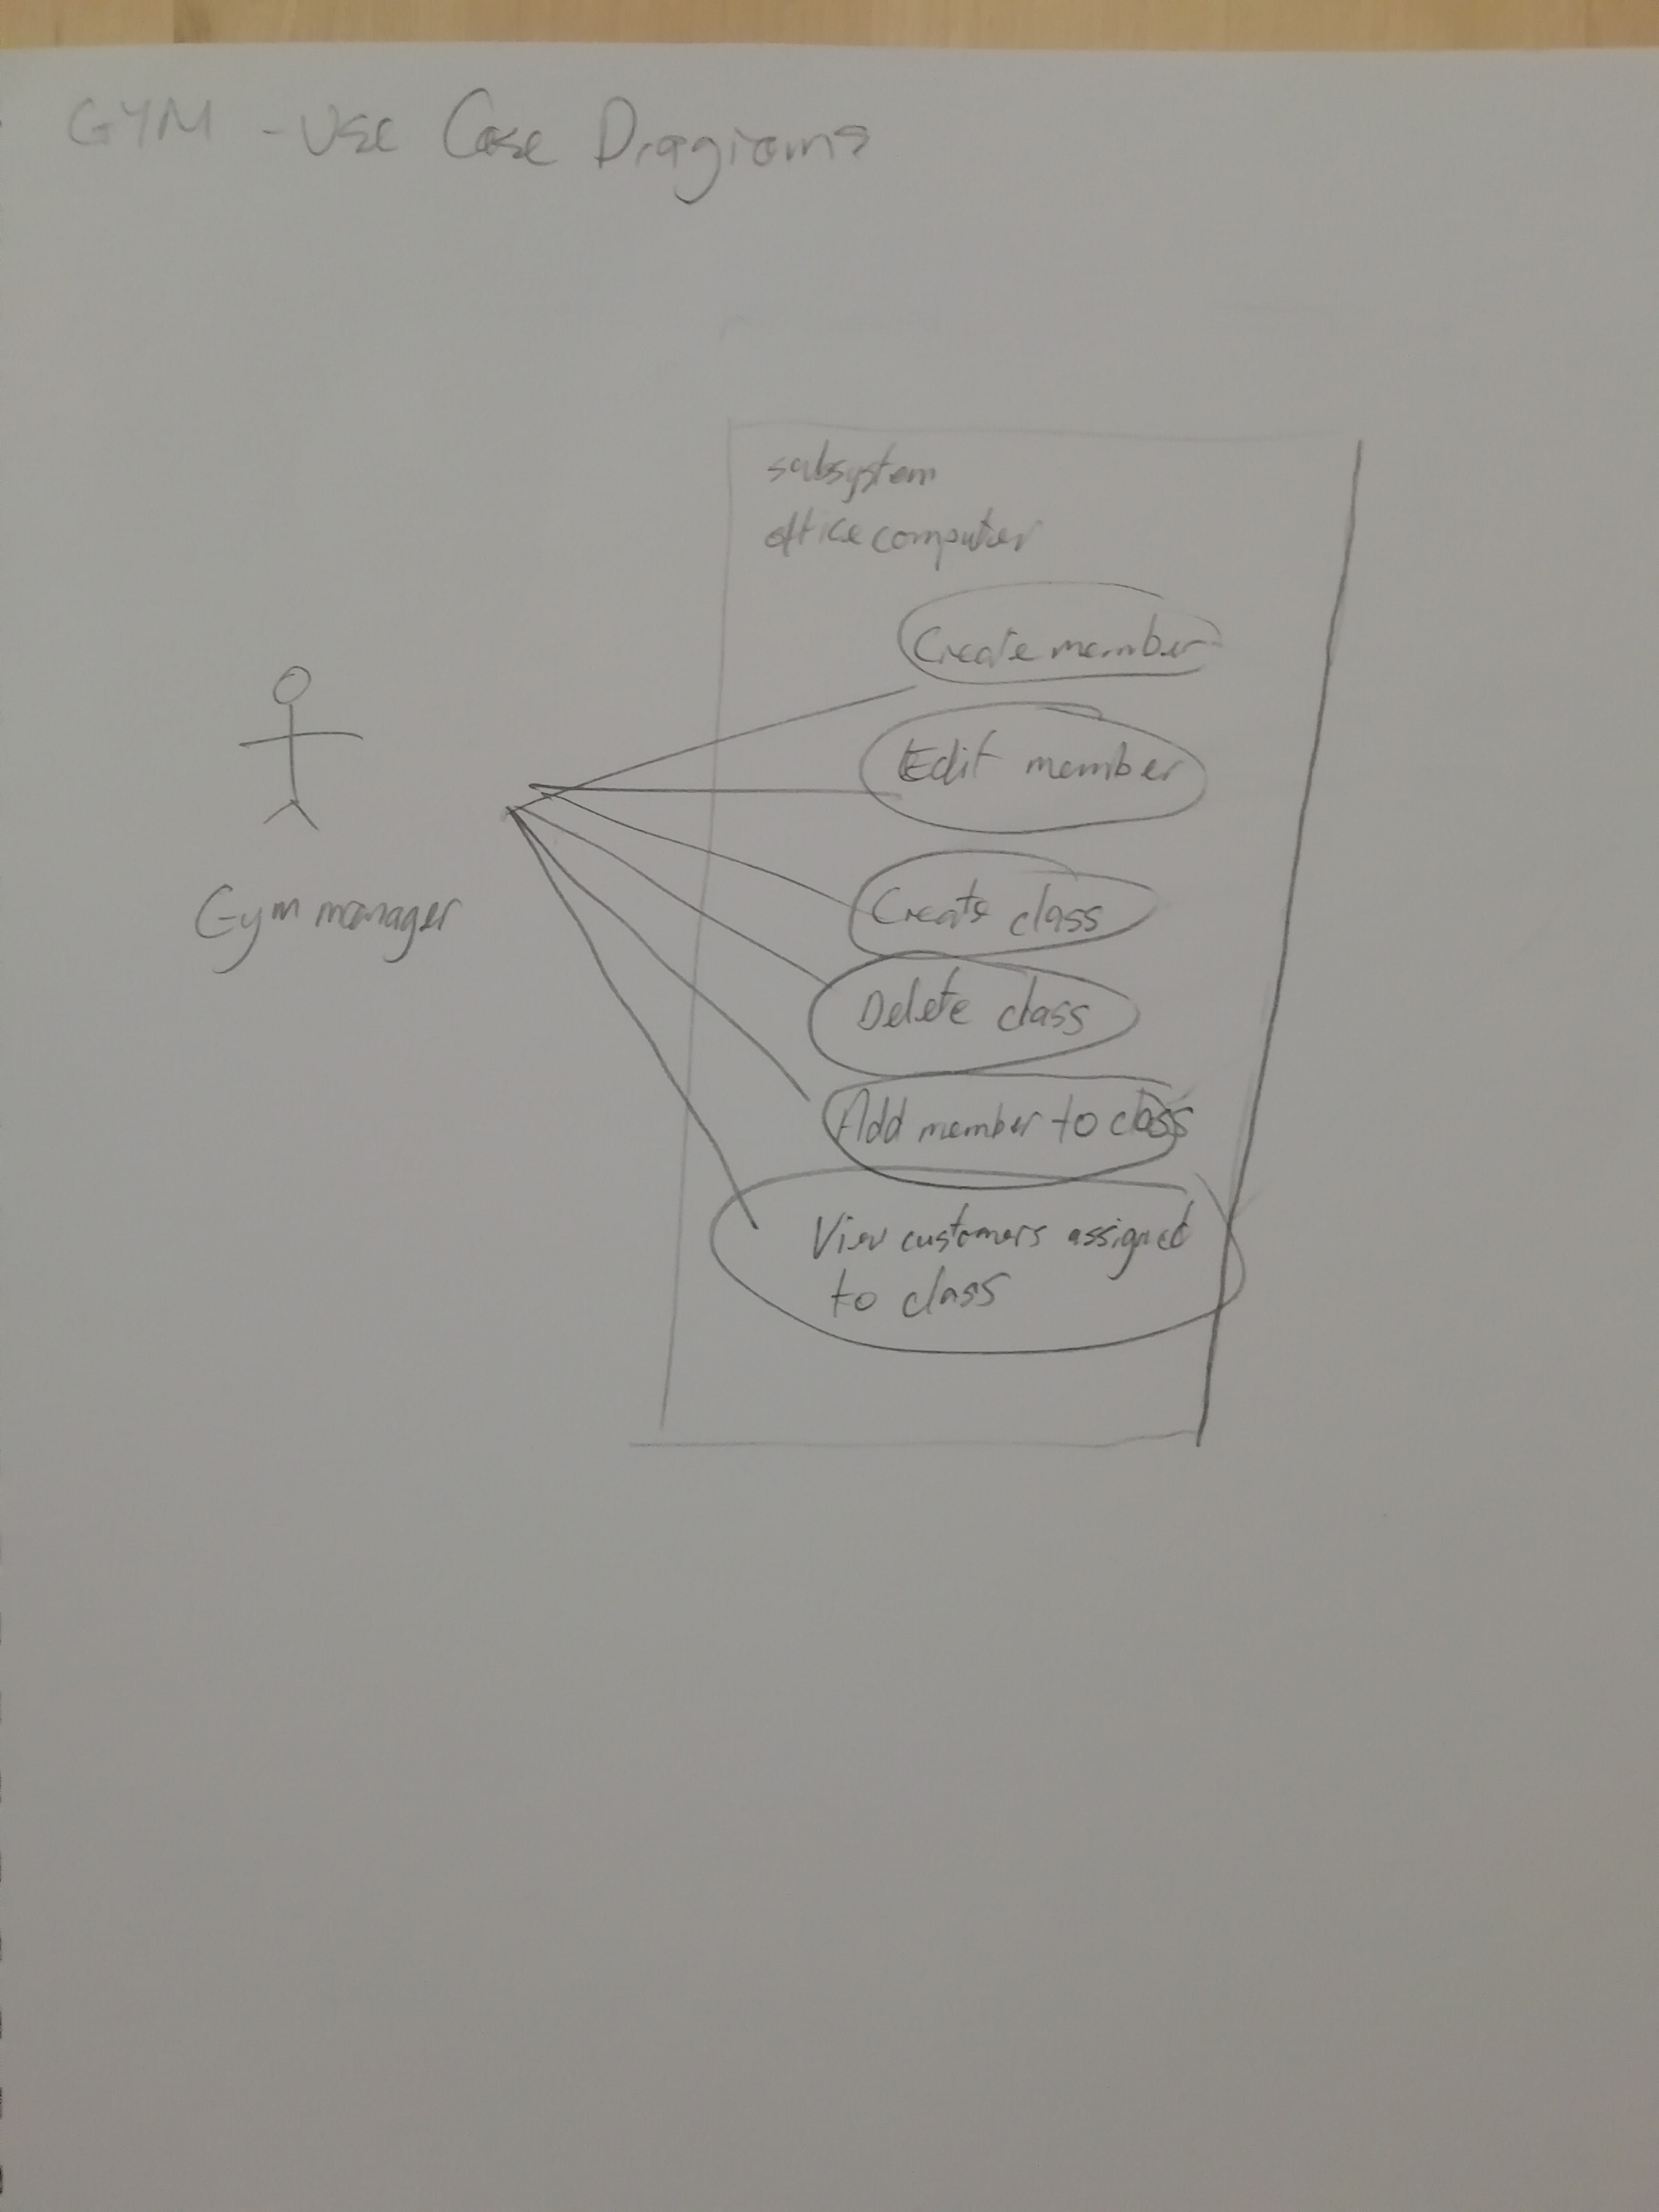 GYM - Use Case Diagrams
subsystem
office computer
Create member
Edit member
Create class
Delete class
Add member to class
View customers assigned
to class
Gym manager